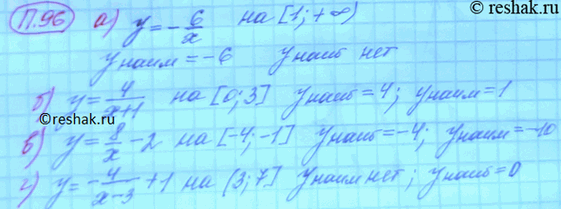 reshak.ru
П.96 а) y = -6/x на [1; +∞)
y наим = -6 y наиб нет
б) y = 4/(x+1) на [0; 3] y наиб = 4; y наим = 1
в) y = 8/x - 2 на [-4; -1] y наиб = -4; y наим = -10
г) y = -4/(x-3) + 1 на (3; 7] y наим нет; y наиб = 0
reshak.ru